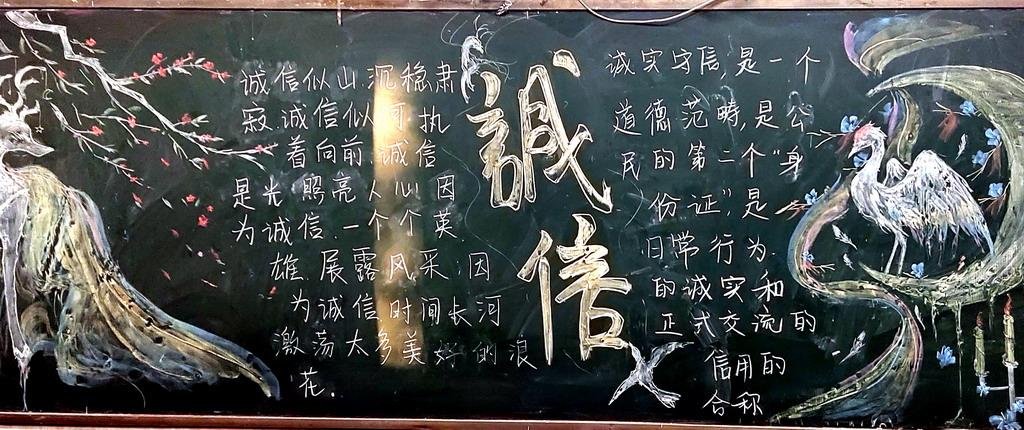 诚信似山沉稳肃
寂诚信似河执
着向前诚信
是光照亮人心因
为诚信一个个英
雄展露风采因
为诚信时间长河
激荡太多美好的浪
花.
誠
信
诚实守信,是一个
道德范畴,是公
民的第二个"身
份证",是
日常行为
的诚实和
正式交流的
信用的
合称